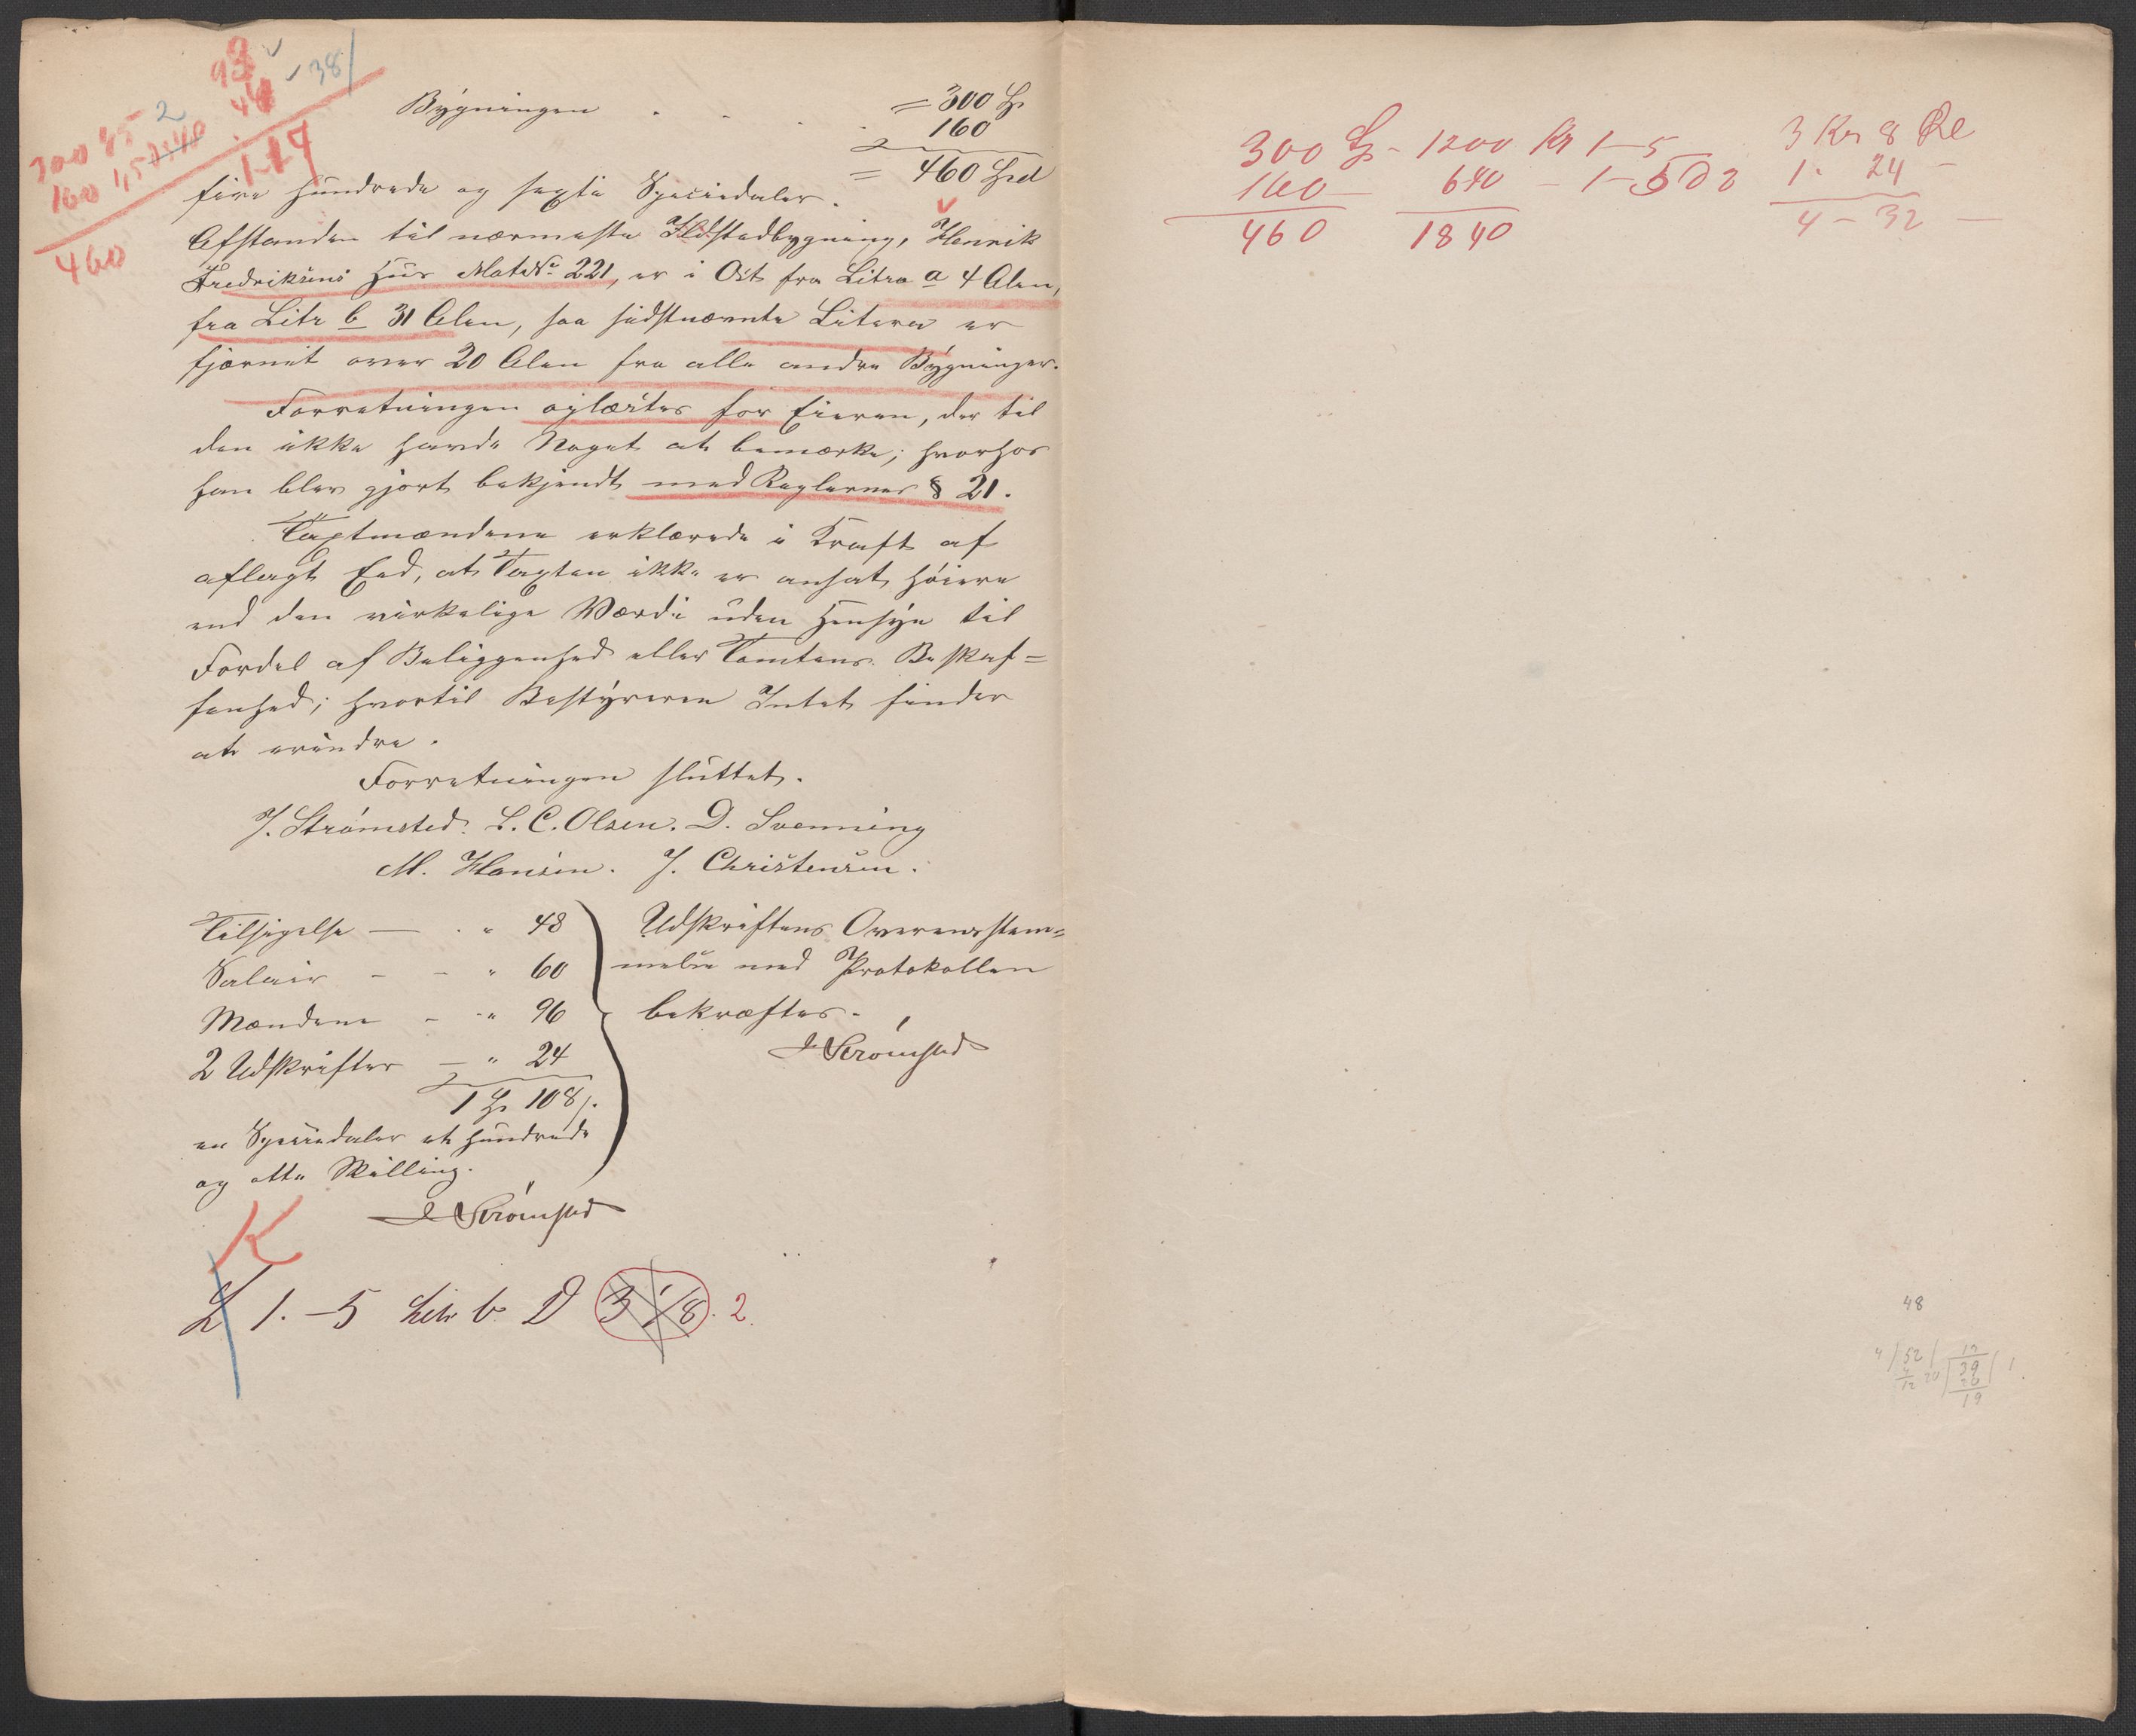 93
46
1-14
38
300 45 2
160 1,5
460
Bygningen . . . . = 300 Sp
160
= 460 Spd
fire hundrede og sexti Speciedaler.
Afstanden til nærmeste Ildstedbygning, Henrik
Fredriksens Huus Mat.No. 221, er i Ost fra Litra a 4 Alen,
fra Litr b 31 Alen, saa sidstnævnte Litera er
fjærnet over 20 Alen fra alle andre Bygninger.
Forretningen oplæstes for Eieren, der til
den ikke havde Noget at bemærke; hvorhos
han blev gjort bekjendt med Reglernes § 21.
Taxtmændene erklærede i Kraft af
aflagt Eed, at Taxten ikke er ansat høiere
end den virkelige Værdi uden Hensyn til
Fordel af Beliggenhed eller Tomtens Beskaf=
fenhed; hvortil Bestyreren Intet finder
at erindre.
Forretningen sluttet.
J. Strømsted. L. C. Olsen. D. Svenning
M. Hansen. J. Christensen.
Tilsigelse — . " 48
Salair - - " 60
Mændene - - " 96
2 Udskrifter — " 24
1 Sp 108 s.
en Speciedaler et hundrede
og otte Skilling.
J Strømsted
Udskriftens Overensstem=
melse med Protokollen
bekræftes.
J Strømsted
K
L 1.-5 Litr b D 3 1/8. 2.
300 Sp - 1200 Kr 1-5 3 Kr 8 Øe
160 — 640 - 1-5 D 2 1. 24 -
460 1840 4 - 32 —
48
4 / 52 / 13
12 20 39 1
19